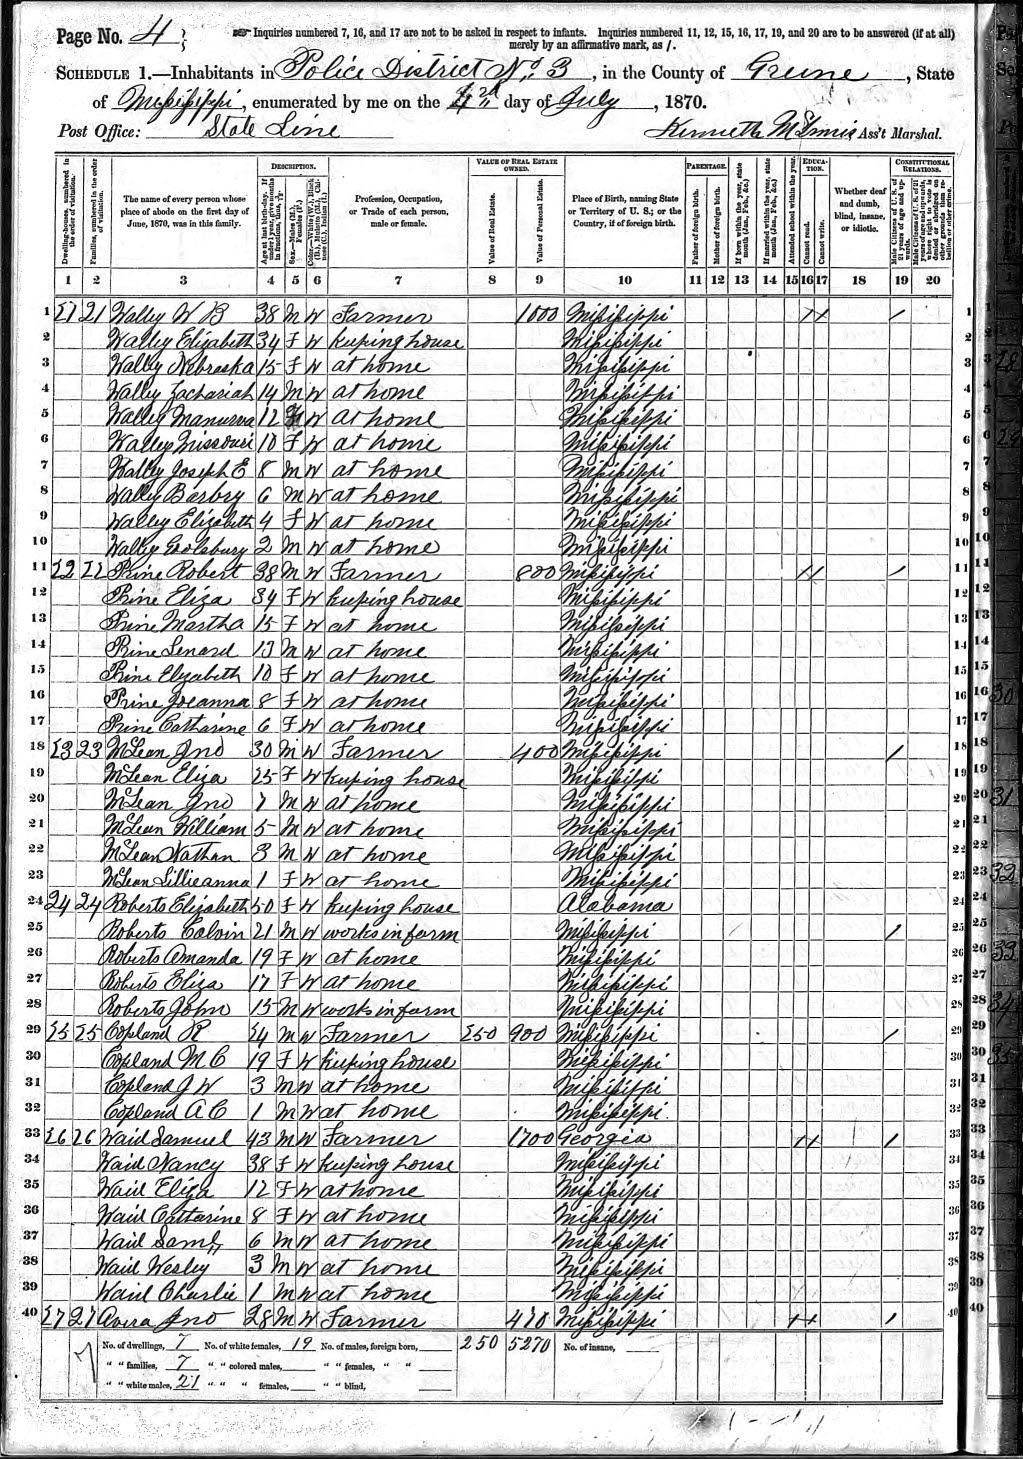 Page No. 4
Inquiries numbered 7, 16, and 17 are not to be asked in respect to infants. Inquiries numbered 11, 12, 15, 16, 17, 19, and 20 are to be answered (if at all)
merely by an affirmative mark, as /.
SCHEDULE 1.—Inhabitants in Police District No. 3, in the County of Greene, State
of Mississippi, enumerated by me on the day of July, 1870.
Post Office: State Line Kenneth McInnis Ass't Marshal.
DESCRIPTION. VALUE OF REAL ESTATE OWNED. PARENTAGE. EDUCATION. CONSTITUTIONAL RELATIONS.
Dwelling-houses, numbered in the order of visitation.
Families, numbered in the order of visitation.
The name of every person whose place of abode on the first day of June, 1870, was in this family.
Age at last birth-day. If under 1 year, give months in fractions, thus, 3/12
Sex.—Males (M.), Females (F.)
Color.—White (W.), Black (B.), Mulatto (M.), Chinese (C.), Indian (I.)
Profession, Occupation, or Trade of each person, male or female.
Value of Real Estate.
Value of Personal Estate.
Place of Birth, naming State or Territory of U. S.; or the Country, if of foreign birth.
Father of foreign birth.
Mother of foreign birth.
If born within the year, state month (Jan., Feb., &c.)
If married within the year, state month (Jan., Feb., &c.)
Attended school within the year.
Cannot read.
Cannot write.
Whether deaf and dumb, blind, insane, or idiotic.
Male Citizens of U. S. of 21 years of age and upwards.
1 2 3 4 5 6 7 8 9 10 11 12 13 14 15 16 17 18 19 20
1 21 21 Walley W B 38 M W Farmer 1000 Mississippi / / / 1
2 Walley Elizabeth 34 F W keeping house Mississippi 2
3 Walley Nebraska 15 F W at home Mississippi 3
4 Walley Zachariah 14 M W at home Mississippi 4
5 Walley Manurva 12 F W at home Mississippi 5
6 Walley Missouri 10 F W at home Mississippi 6
7 Walley Joseph E 8 M W at home Mississippi 7
8 Walley Barbry 6 M W at home Mississippi 8
9 Walley Elizabeth 4 F W at home Mississippi 9
10 Walley Goolsbury 2 M W at home Mississippi 10
11 22 22 Prine Robert 38 M W Farmer 800 Mississippi / / / 11
12 Prine Eliza 34 F W keeping house Mississippi 12
13 Prine Martha 15 F W at home Mississippi 13
14 Prine Lenard 13 M W at home Mississippi 14
15 Prine Elizabeth 10 F W at home Mississippi 15
16 Prine Joeanna 8 F W at home Mississippi 16
17 Prine Catharine 6 F W at home Mississippi 17
18 23 23 McLean Jno 30 M W Farmer 400 Mississippi / 18
19 McLean Eliza 25 F W keeping house Mississippi 19
20 McLean Jno 7 M W at home Mississippi 20
21 McLean William 5 M W at home Mississippi 21
22 McLean Nathan 3 M W at home Mississippi 22
23 McLean Lillieanna 1 F W at home Mississippi 23
24 24 24 Roberts Elizabeth 50 F W keeping house Alabama 24
25 Roberts Calvin 21 M W works in farm Mississippi / 25
26 Roberts Amanda 19 F W at home Mississippi 26
27 Roberts Eliza 17 F W at home Mississippi 27
28 Roberts John 15 M W works in farm Mississippi 28
29 25 25 Copland R 24 M W Farmer 250 900 Mississippi / 29
30 Copland M C 19 F W keeping house Mississippi 30
31 Copland J W 3 M W at home Mississippi 31
32 Copland A C 1 M W at home Mississippi 32
33 26 26 Waid Samuel 43 M W Farmer 1700 Georgia / / / 33
34 Waid Nancy 38 F W keeping house Mississippi 34
35 Waid Eliza 12 F W at home Mississippi 35
36 Waid Catharine 8 F W at home Mississippi 36
37 Waid Saml 6 M W at home Mississippi 37
38 Waid Wesley 3 M W at home Mississippi 38
39 Waid Charlie 1 M W at home Mississippi 39
40 27 27 Avera Jno 28 M W Farmer 470 Mississippi / / / 40
No. of dwellings, 7 No. of white females, 19 No. of males, foreign born, 250 5270 No. of insane,
" " families, 7 " " colored males, " " females, " "
" " white males, 21 " " " females, " " blind,